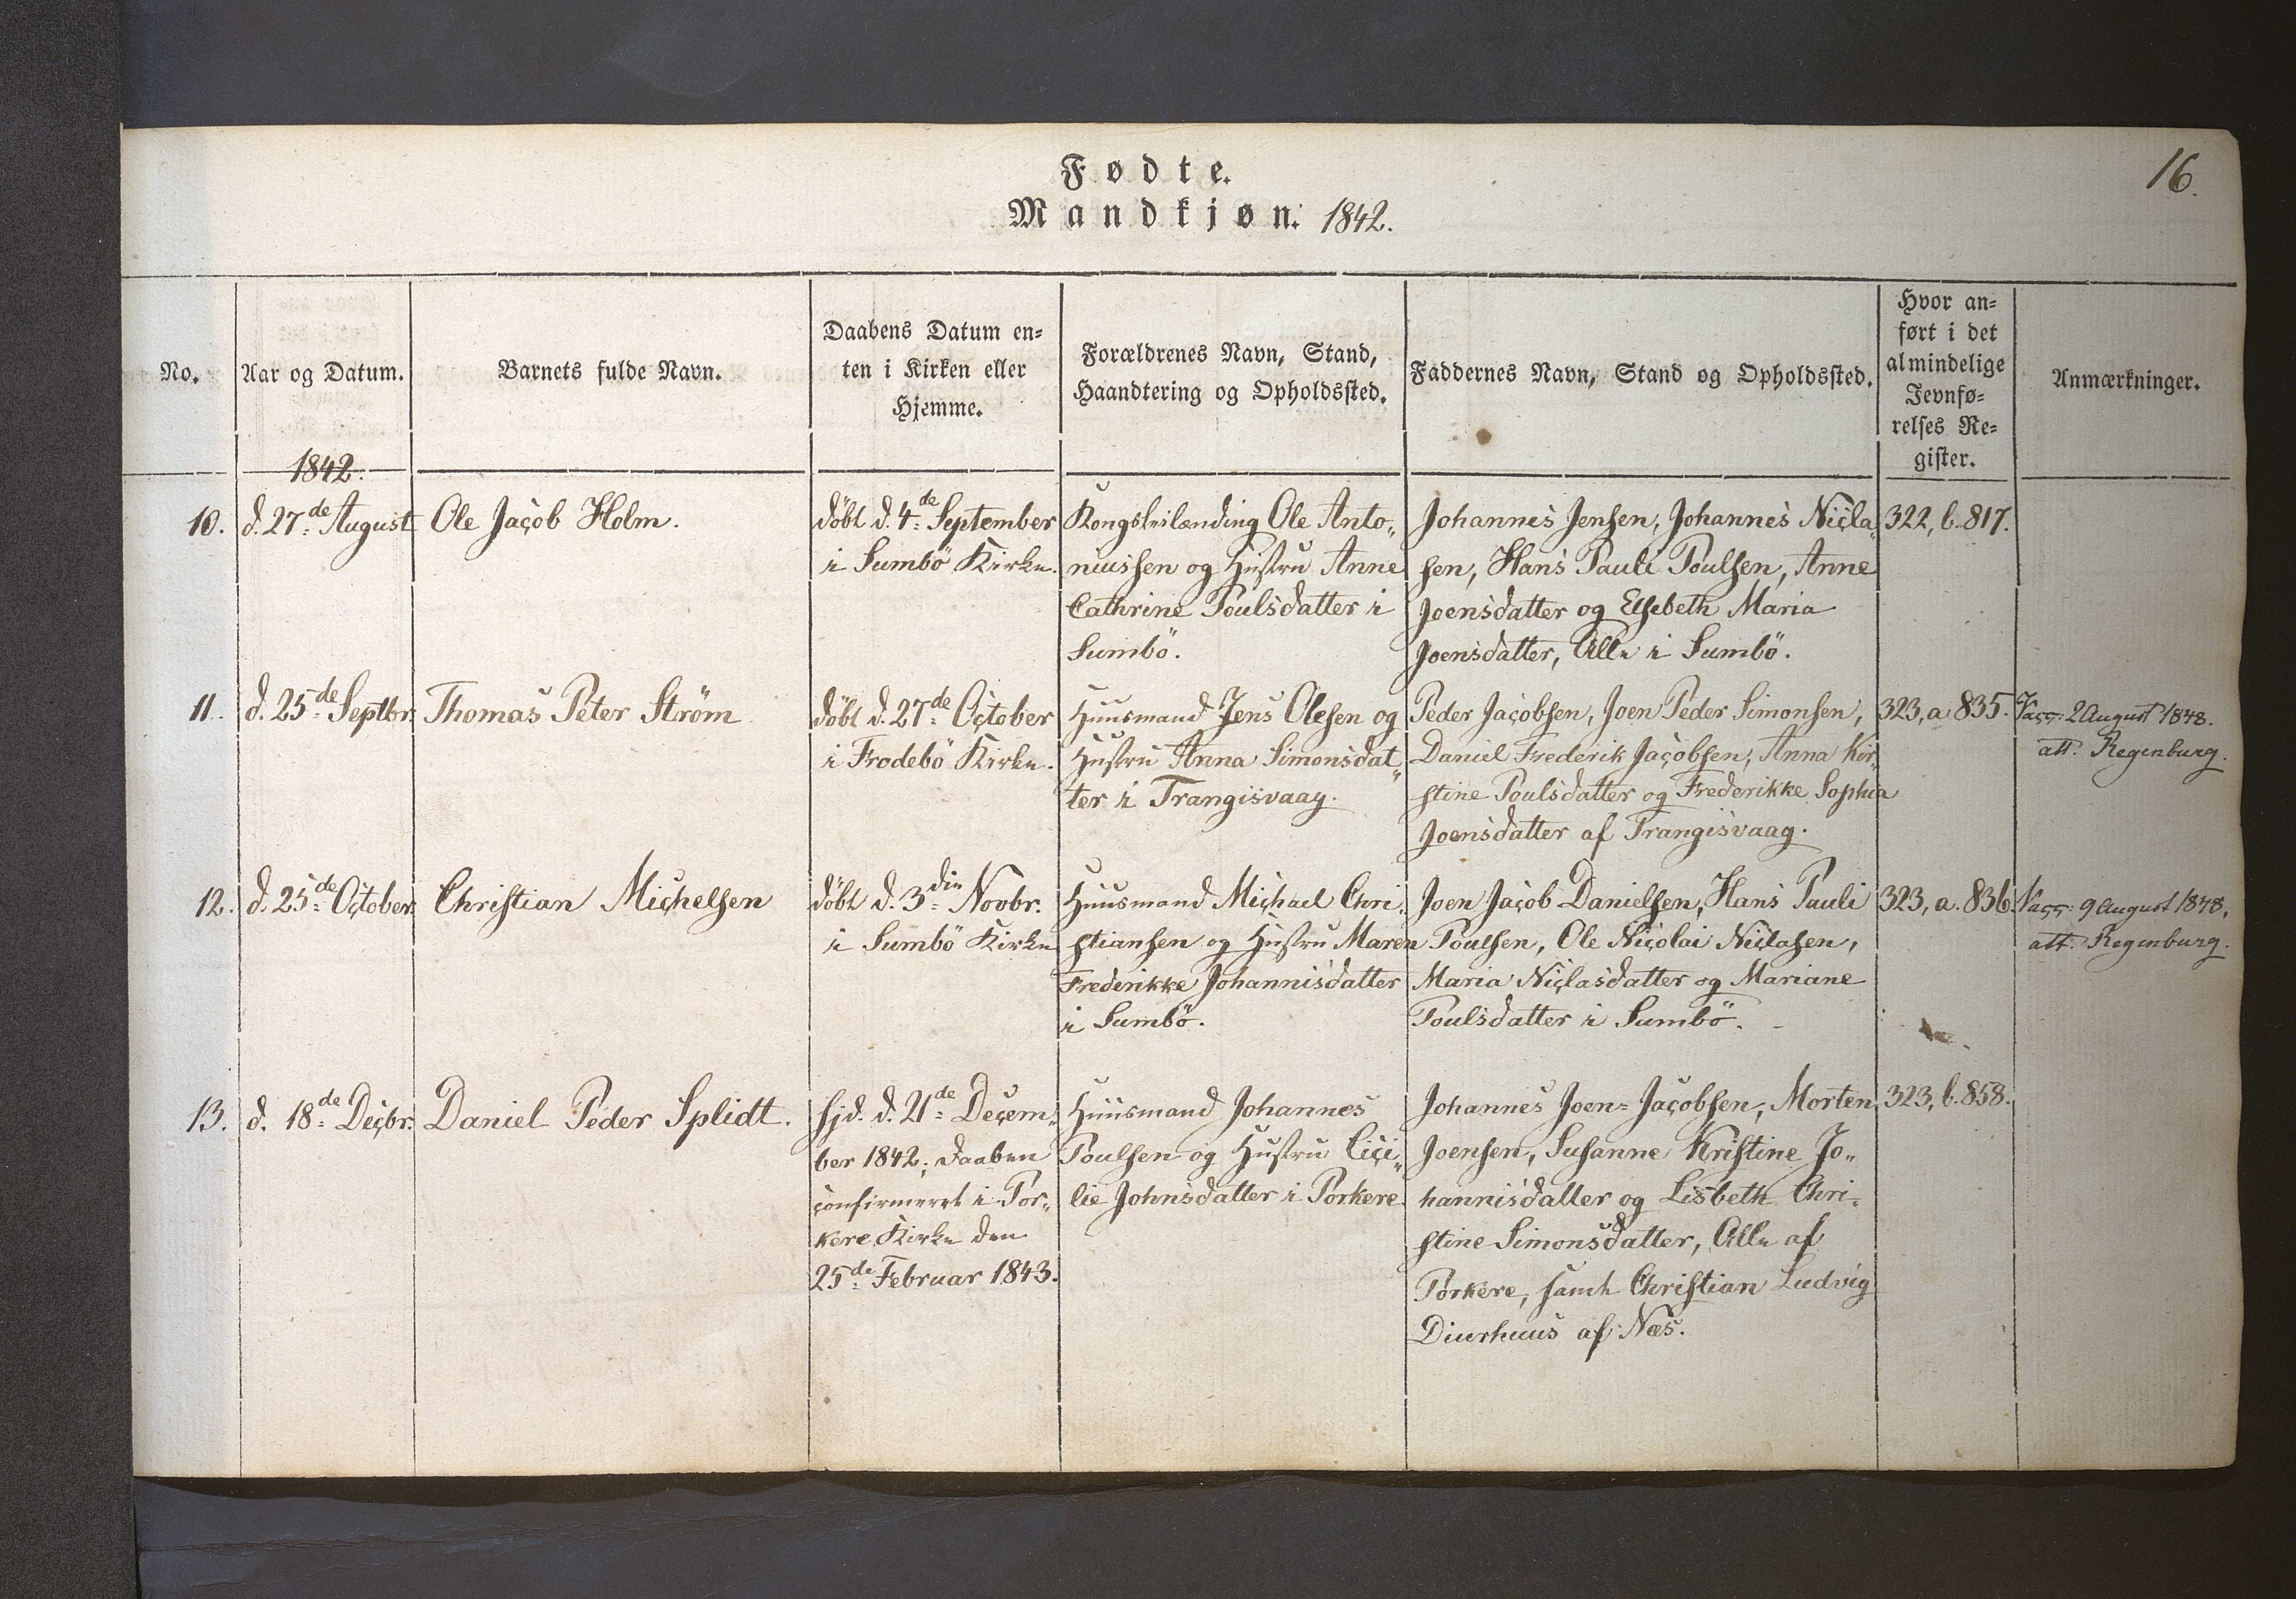 16.
Fødte.
Mandkjøn. 1842.
No.
Aar og Datum.
Barnets fulde Navn.
Daabens Datum en=
ten i Kirken eller
Hjemme.
Forældrenes Navn, Stand,
Haandtering og Opholdssted.
Faddernes Navn, Stand og Opholdssted.
Hvor an=
ført i det
almindelige
Jevnfø=
relses Re=
gister.
Anmærkninger.
1842.
10.
d. 27de August
Ole Jacob Holm.
döbt d. 4de September
i Sumbö Kirke.
Kongsleilænding Ole Anto„
niussen og Hustru Anne
Cathrine Poulsdatter i
Sumbö.
Johannes Jensen, Johannes Nicla„
sen, Hans Pauli Poulsen, Anne
Joensdatter og Elsebeth Maria
Joensdatter, Alle i Sumbö.
322, b. 817.
11.
d. 25de Septbr.
Thomas Peter Ström
döbt d. 27de October
i Frodebö Kirke.
Huusmand Jens Olesen og
Hustru Anna Simonsdat„
ter i Trangisvaag.
Peder Jacobsen, Joen Peder Simonsen,
Daniel Frederik Jacobsen, Anna Kir„
stine Poulsdatter og Frederikke Sophia
Joensdatter af Trangisvaag.
323, a 835.
Vacc: 2 August 1848.
att. Regenburg.
12.
d. 25de October.
Christian Michelsen
döbt d. 3die Novbr.
i Sumbö Kirke
Huusmand Michael Chri„
stiansen og Hustru Maren
Frederikke Johannisdatter
i Sumbö.
Joen Jacob Danielsen, Hans Pauli
Poulsen, Ole Nicolai Niclasen,
Maria Niclasdatter og Mariane
Poulsdatter i Sumbö.
323, a. 836.
Vacc: 9 August 1848,
att. Regenburg.
13.
d. 18de Decbr.
Daniel Peder Splidt.
hjd. d. 21de Decem„
ber 1842; Daaben
confirmeret i Por„
kere Kirke den
25de Februar 1843.
Huusmand Johannes
Poulsen og Hustru Cici„
lie Johnsdatter i Porkere.
Johannes Joen= Jacobsen, Morten
Joensen, Susanne Kristine Jo„
hannisdatter og Lisbeth Chri„
stine Simonsdatter, Alle af
Porkere, samt Christian Ludvig
Diurhuus af Næs.
323, b. 858.